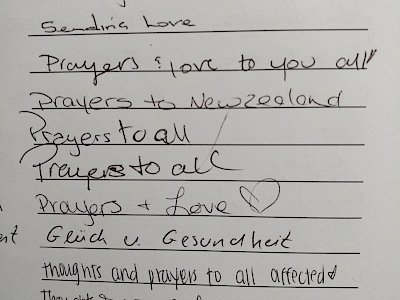 Sending Love
Prayers & love to you all
Prayers to New Zealand
Prayers to all
Prayers to all
Prayers + Love ♡
Glück u. Gesundheit
thoughts and prayers to all affected